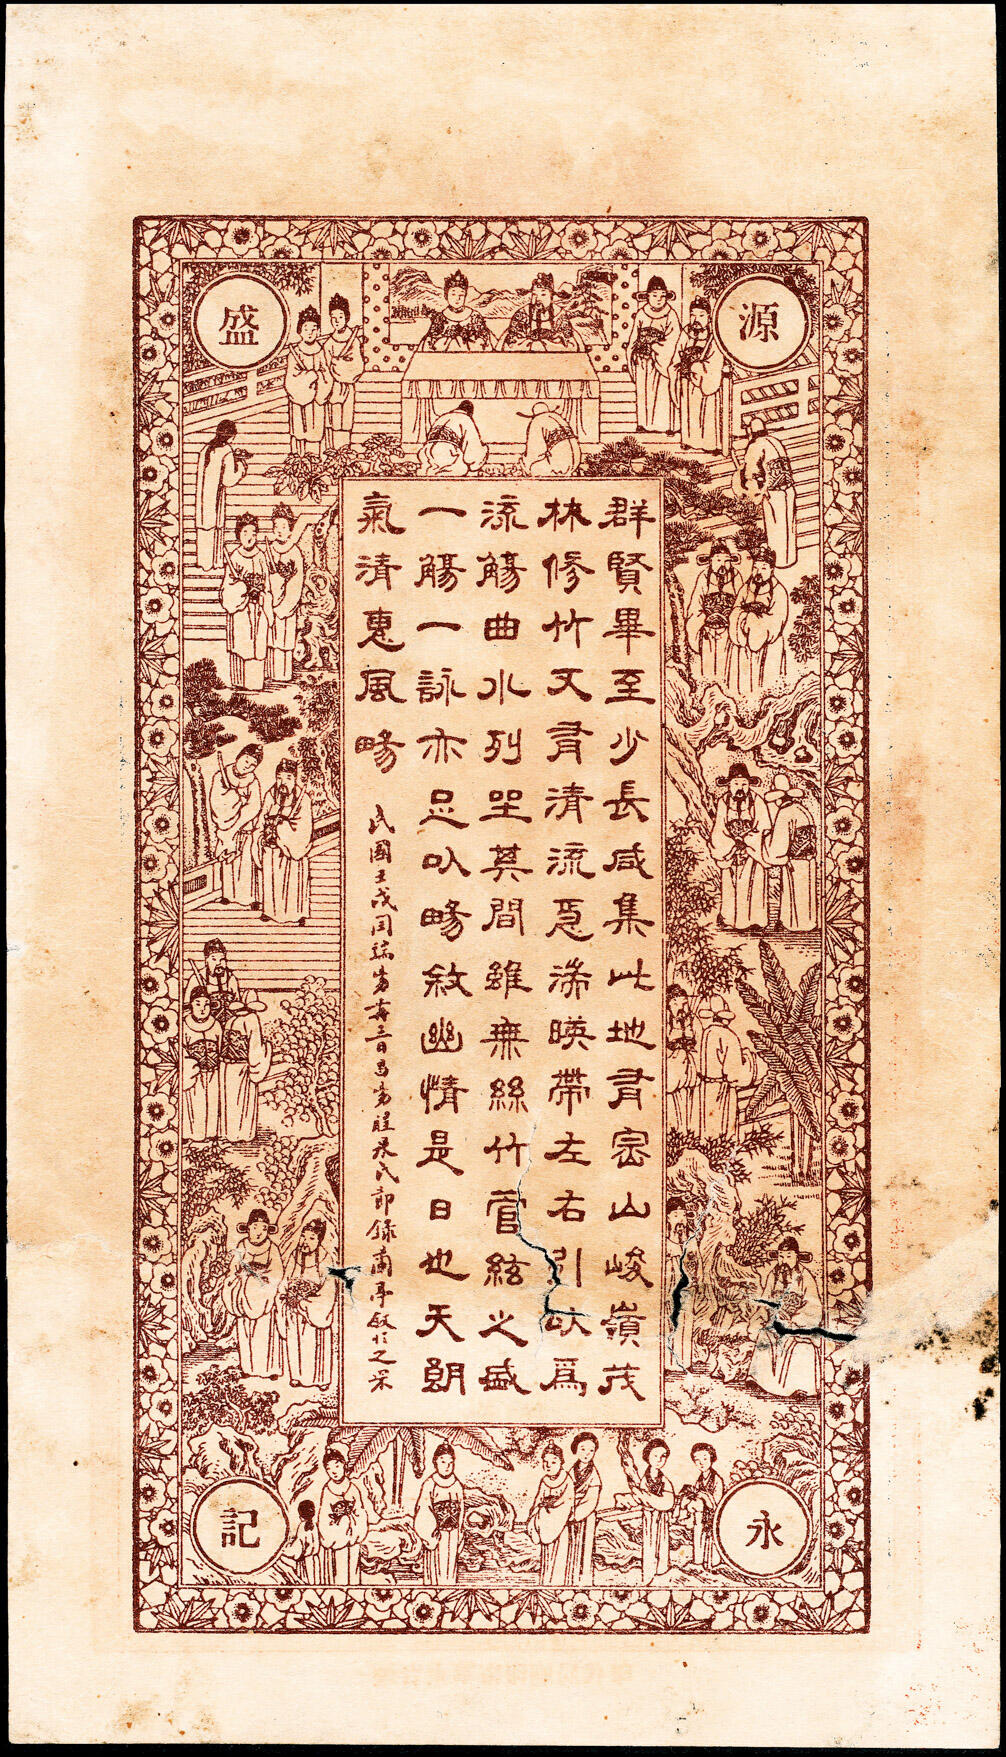 源盛
群賢畢至少長咸集此地有崇山峻嶺茂
林修竹又有清流急湍暎帶左右引以爲
流觴曲水列坐其間雖無絲竹管絃之盛
一觴一詠亦足以暢敘幽情是日也天朗
氣清惠風暢
民國壬戌閏端陽 三日 錄蘭亭敘
永記